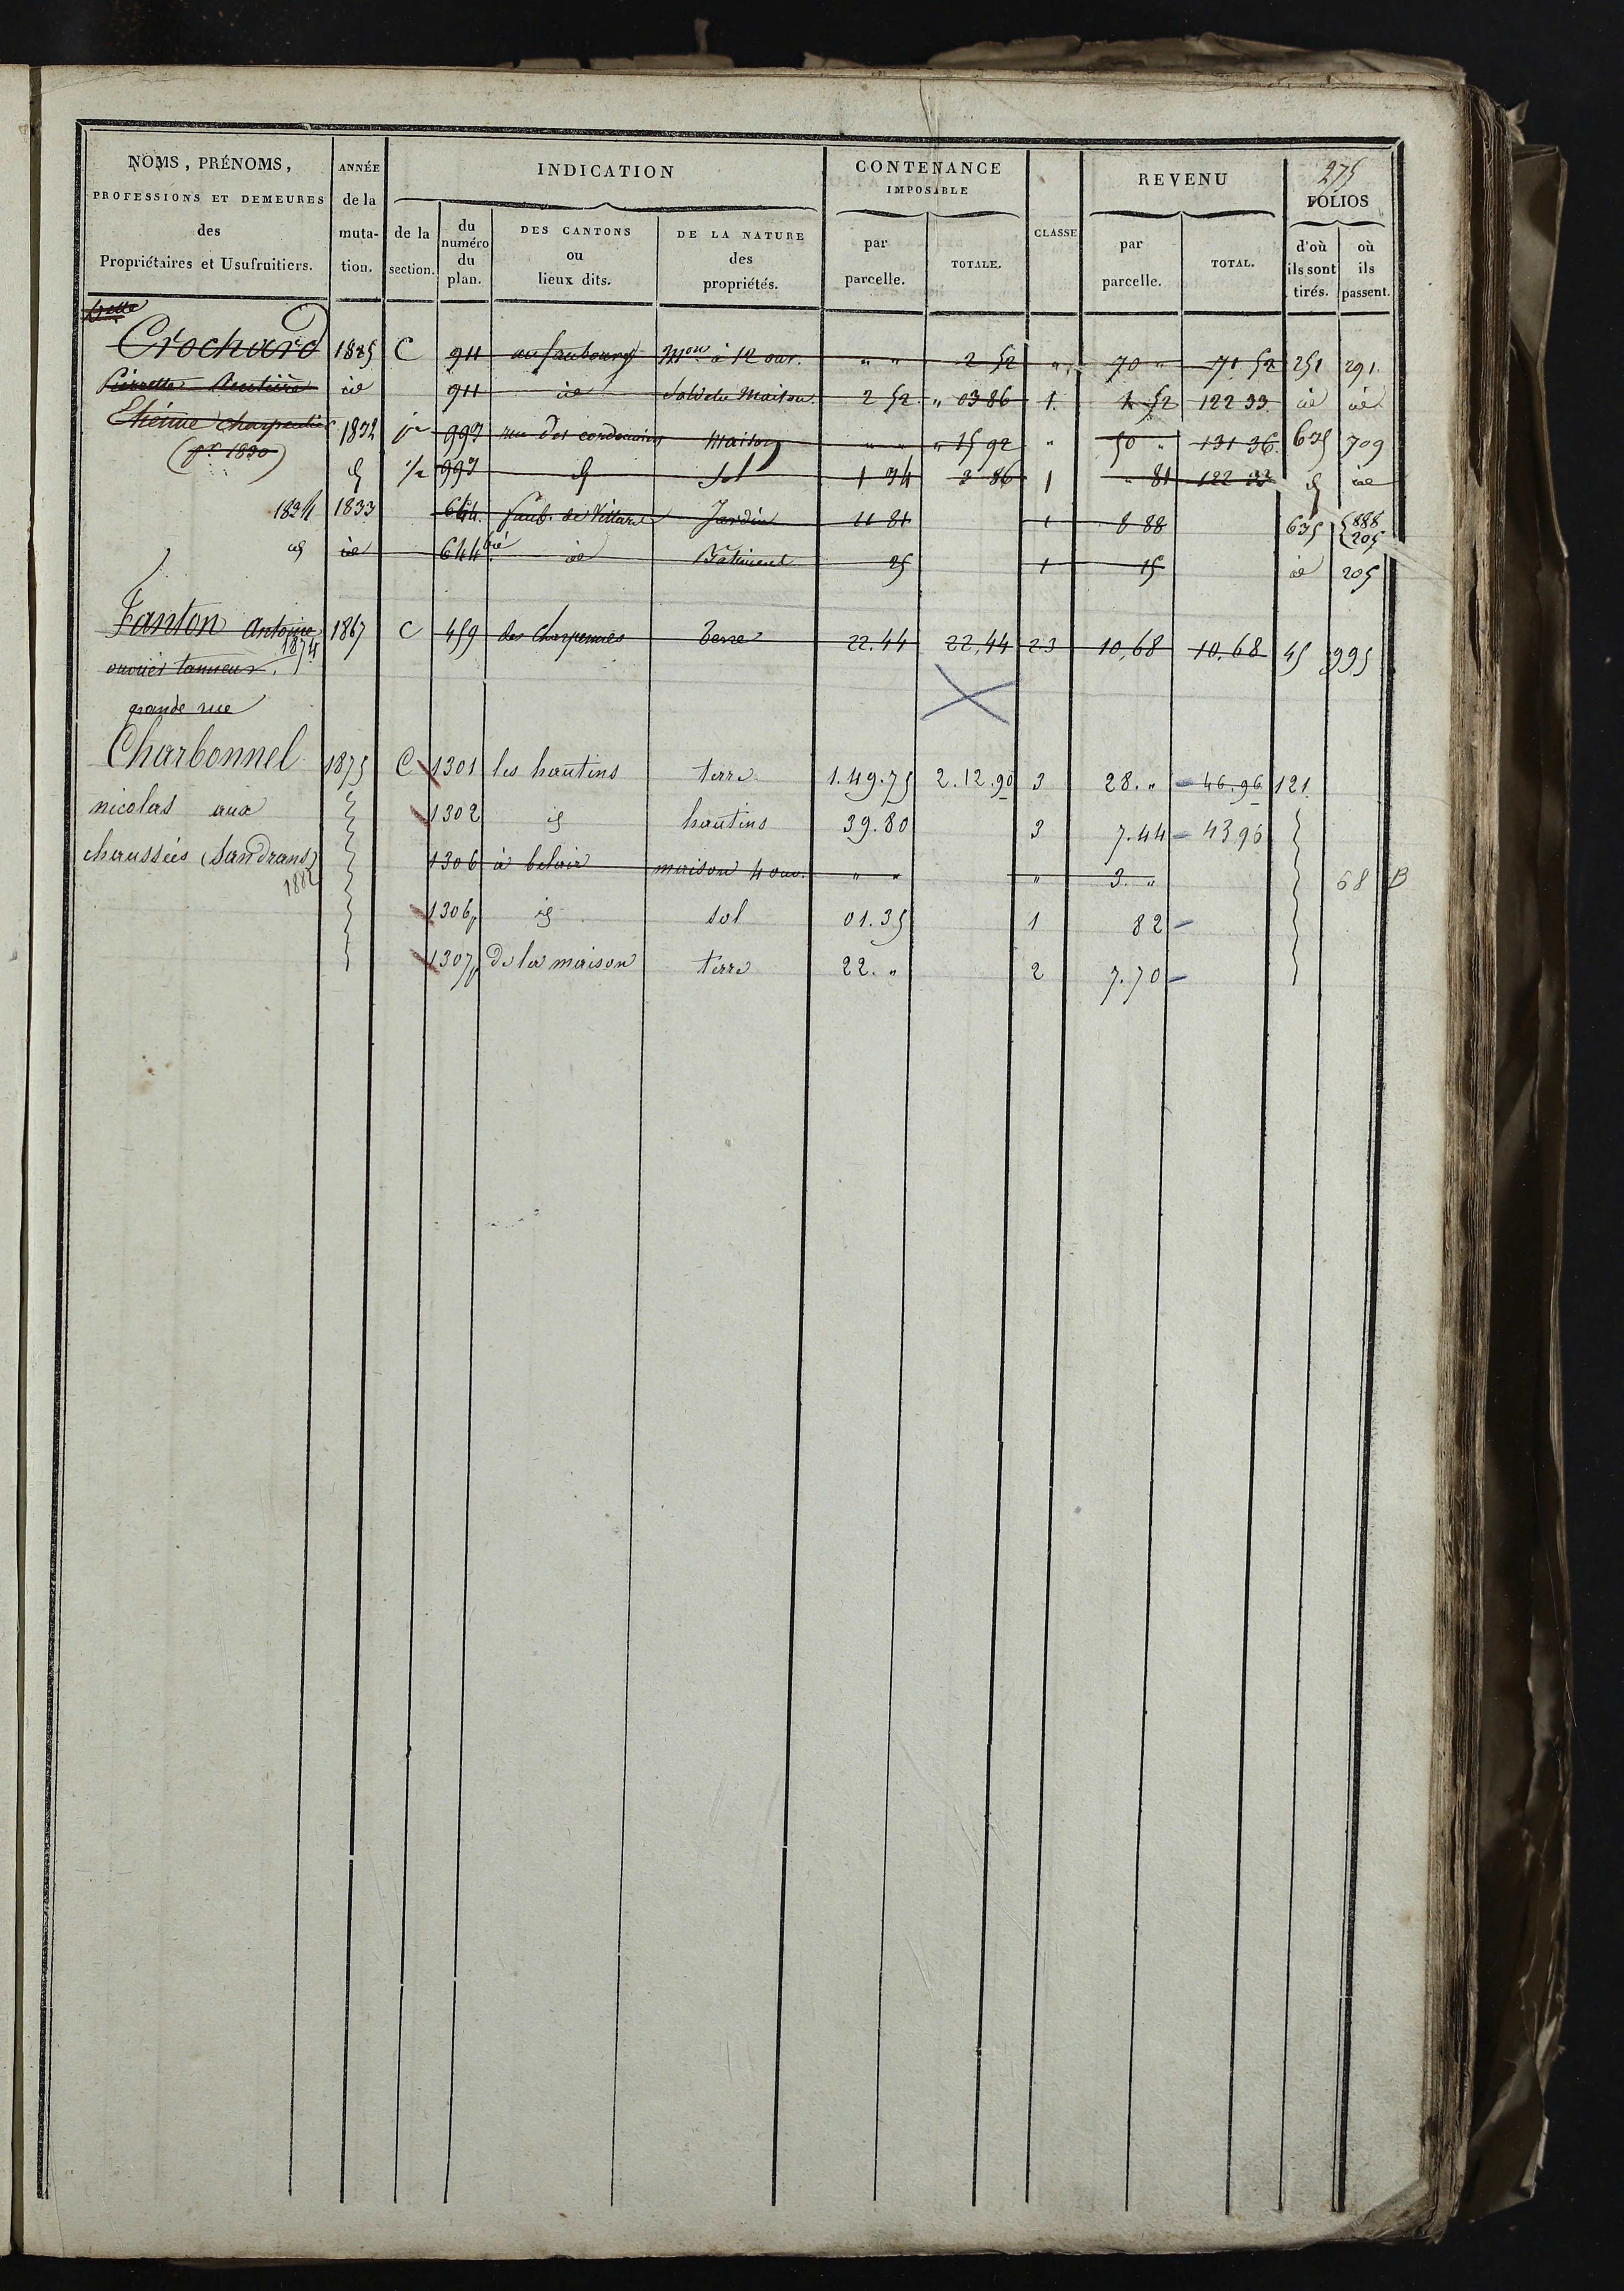 275
NOMS, PRÉNOMS, PROFESSIONS ET DEMEURES des Propriétaires et Usufruitiers.
ANNÉE de la muta- tion.
INDICATION
de la section.
du numéro du plan.
DES CANTONS ou lieux dits.
DE LA NATURE des propriétés.
CONTENANCE IMPOSABLE
par parcelle.
TOTALE.
CLASSE
REVENU
par parcelle.
TOTAL.
FOLIOS
d'où ils sont tirés.
où ils passent.
Crochard 1825 C 911 au faubourg Mon à 12 ouv. " " 2 52 " 70 " 71 52 251 291
Pierrette Rentière id 911 id Sol de Maison 2 52 " 03 86 1. 1 52 122 33 id id
Etienne charpentier 1832 pie 997 rue des cordonniers Maison " " " 15 92 " 50 " 131 36 635 709
(pr 1830) id 1/2 997 id Sol 1 34 3 86 1 " 81 122 33 id id
1834 1833 644 faub. de Villard Jardin 11 81 1 8 88 635 888 205
id id 644 bis id Bâtiment 25 1 15 id 205
Fanton Antoine 1867 C 459 des Charpennes Terre 22.44 22,44 2.3 10,68 10,68 45 995
1874
ouvrier tanneur.
grande rue
Charbonnel 1875 C 1301 les hautins terre 1.49.75 2.12.90 3 28. " 46.96 121
nicolas aux 1302 id hautins 39.80 3 7.44 43 96
chaussées (Sandrans) 1306 à belair maison 4 ouv. " " " 3. " 68 B
1882
1306p id sol 01.35 1 82
1307p de la maison terre 22. " 2 7.70